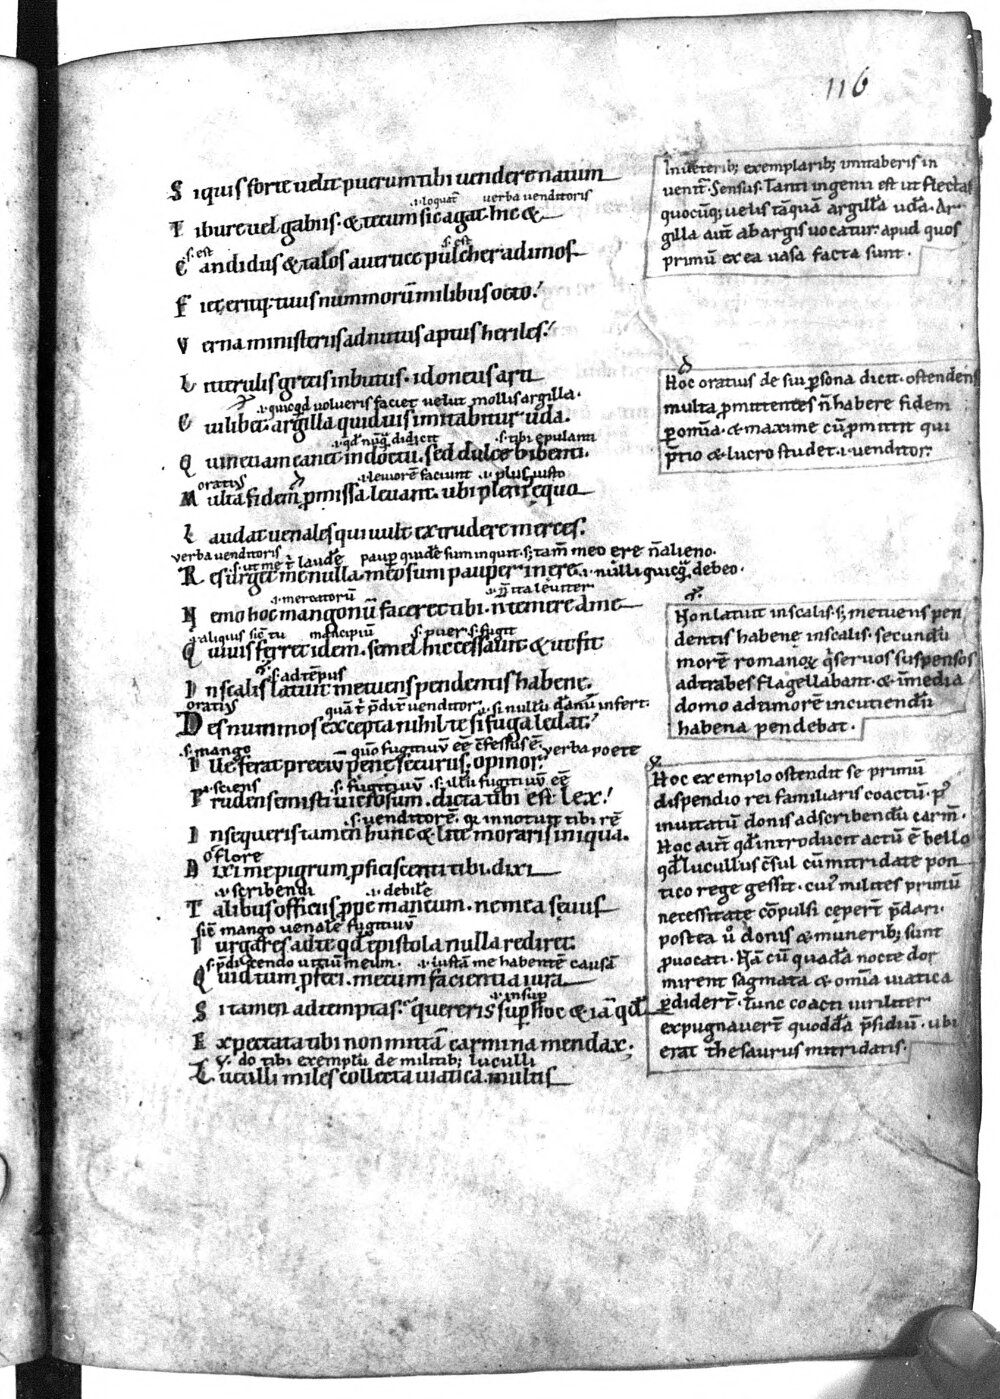 116
S iquis forte uelit puerum tibi uendere natum
.i. loquat̄ uerba uenditoris
T ibure uel gabiis · & tecum sic agat · hic &
s. est s. est
C andidus & talos a uertice pulcher ad imos
F iet eritq; tuus nummorū milibus octo·
V erna ministeriis ad nutus aptus heriles·
L iterulis grecis inbutus · idoneus arti
.i. quicqd uolueris faciet uelut mollis argilla·
C uilibet · argilla quiduis imitabitur uda·
.i. qd nūq̄ didicit ·s. tibi epulanti
Q uin etiam canet indoctū · sed dulce bibenti·
oratius .i. leuiorē faciunt .i. plus iusto
M ulta fidem p̄missa leuant · ubi pleni� equo
L audat uenales qui uult extrudere merces·
uerba uenditoris ·s. ut me r̄ laudē paup quidē sum inquit · s; tam̄ meo ere n̄ alieno·
R es urget me nulla · meo sum pauper in ere .i. nulli quicq̄ debeo·
.i. mercatorū .i. ita leuiter
N emo hoc mangonū faceret tibi · n̄ temere a me
q aliquis sic̄ tu mancipiū ·s. puer ·s. fugit
Q uiuis ferret idem · semel hic cessauit & ut fit
·s. ad tēpus
I n scalis latuit metuens pendentis habene·
oratius quā r̄ p̄dix̄ uenditor .i. si nullū dānū infert·
D es nummos excepta nihil te si fuga ledat·
·s. mango quō fugitiuū eē c̄fessus ē· uerba poete
I lle ferat preciū penę securus; opinor·
·sciens ·s. fugitiuū ·s. illū fugitiuū eē
P rudens emisti uiciosum · dicta tibi est lex·
·s. uenditorē· q innotuit tibi rē
I nsequeris tamen hunc & lite moraris iniqua·
o flore
D ixi me pigrum p̄ficiscenti tibi · dixi
.i. scribendi .i. debilē
T alibus officiis p̄pe mancum · ne mea seuus
sic̄ mango uenalē fugitiuū
I urgares ad te qd̄ epistola nulla rediret·
·s. p̄dicendo uitiū meum · .i. iustā me habentē causā
Q uid tum p̄feci · mecum facientia iura
.i. insup
S i tamen ad temptas· quereris sup hoc & iā qd̄
E xpectata tibi non mittā carmina mendax·
do tibi exemplū de militib; luculli
L uculli miles collecta uiatica multis
In ueterib; exemplarib; imitaberis in
uenit̄ · Sensus · Tanti ingenii est ut flectas
quocūq; uelis tāquā argillā udā · Ar
gilla aut̄ ab argis uocatur · apud quos
primū ex ea uasa facta sunt ·
Hoc oratius de sui p̄sona dicit · ostendens
multa p̄mittentes n̄ habere fidem
p omīa · & maxime cū p̄mittit qui
p̄tio & lucro studet · i · uenditor·
Hon latuit in scalis · s; metuens pen
dentis habenę in scalis · secundū
morē romanoꝝ q̄ seruos suspensos
ad trabes flagellabant · & in media
domo ad timorē incutiendū
habena pendebat ·
Hoc exemplo ostendit se primū
dispendio rei familiaris coactū · p̄
inuitatū donis ad scribendū carm̄ ·
Hoc aut̄ qd̄ introducit actū ē bello
qd̄ lucullus c̄sul cū mitridate pon
tico rege gessit · cui milites primū
necessitate cōpulsi ceper̄t p̄dari ·
postea u̇ donis & munerib; sunt
p̄uocati · Nā cū quadā nocte dor
mirent sagmata & omīa uiatica
p̄dider̄t · tunc coacti uiriliter
expugnauer̄t quoddā p̄sidiū · ubi
erat thesaurus mitridatis ·